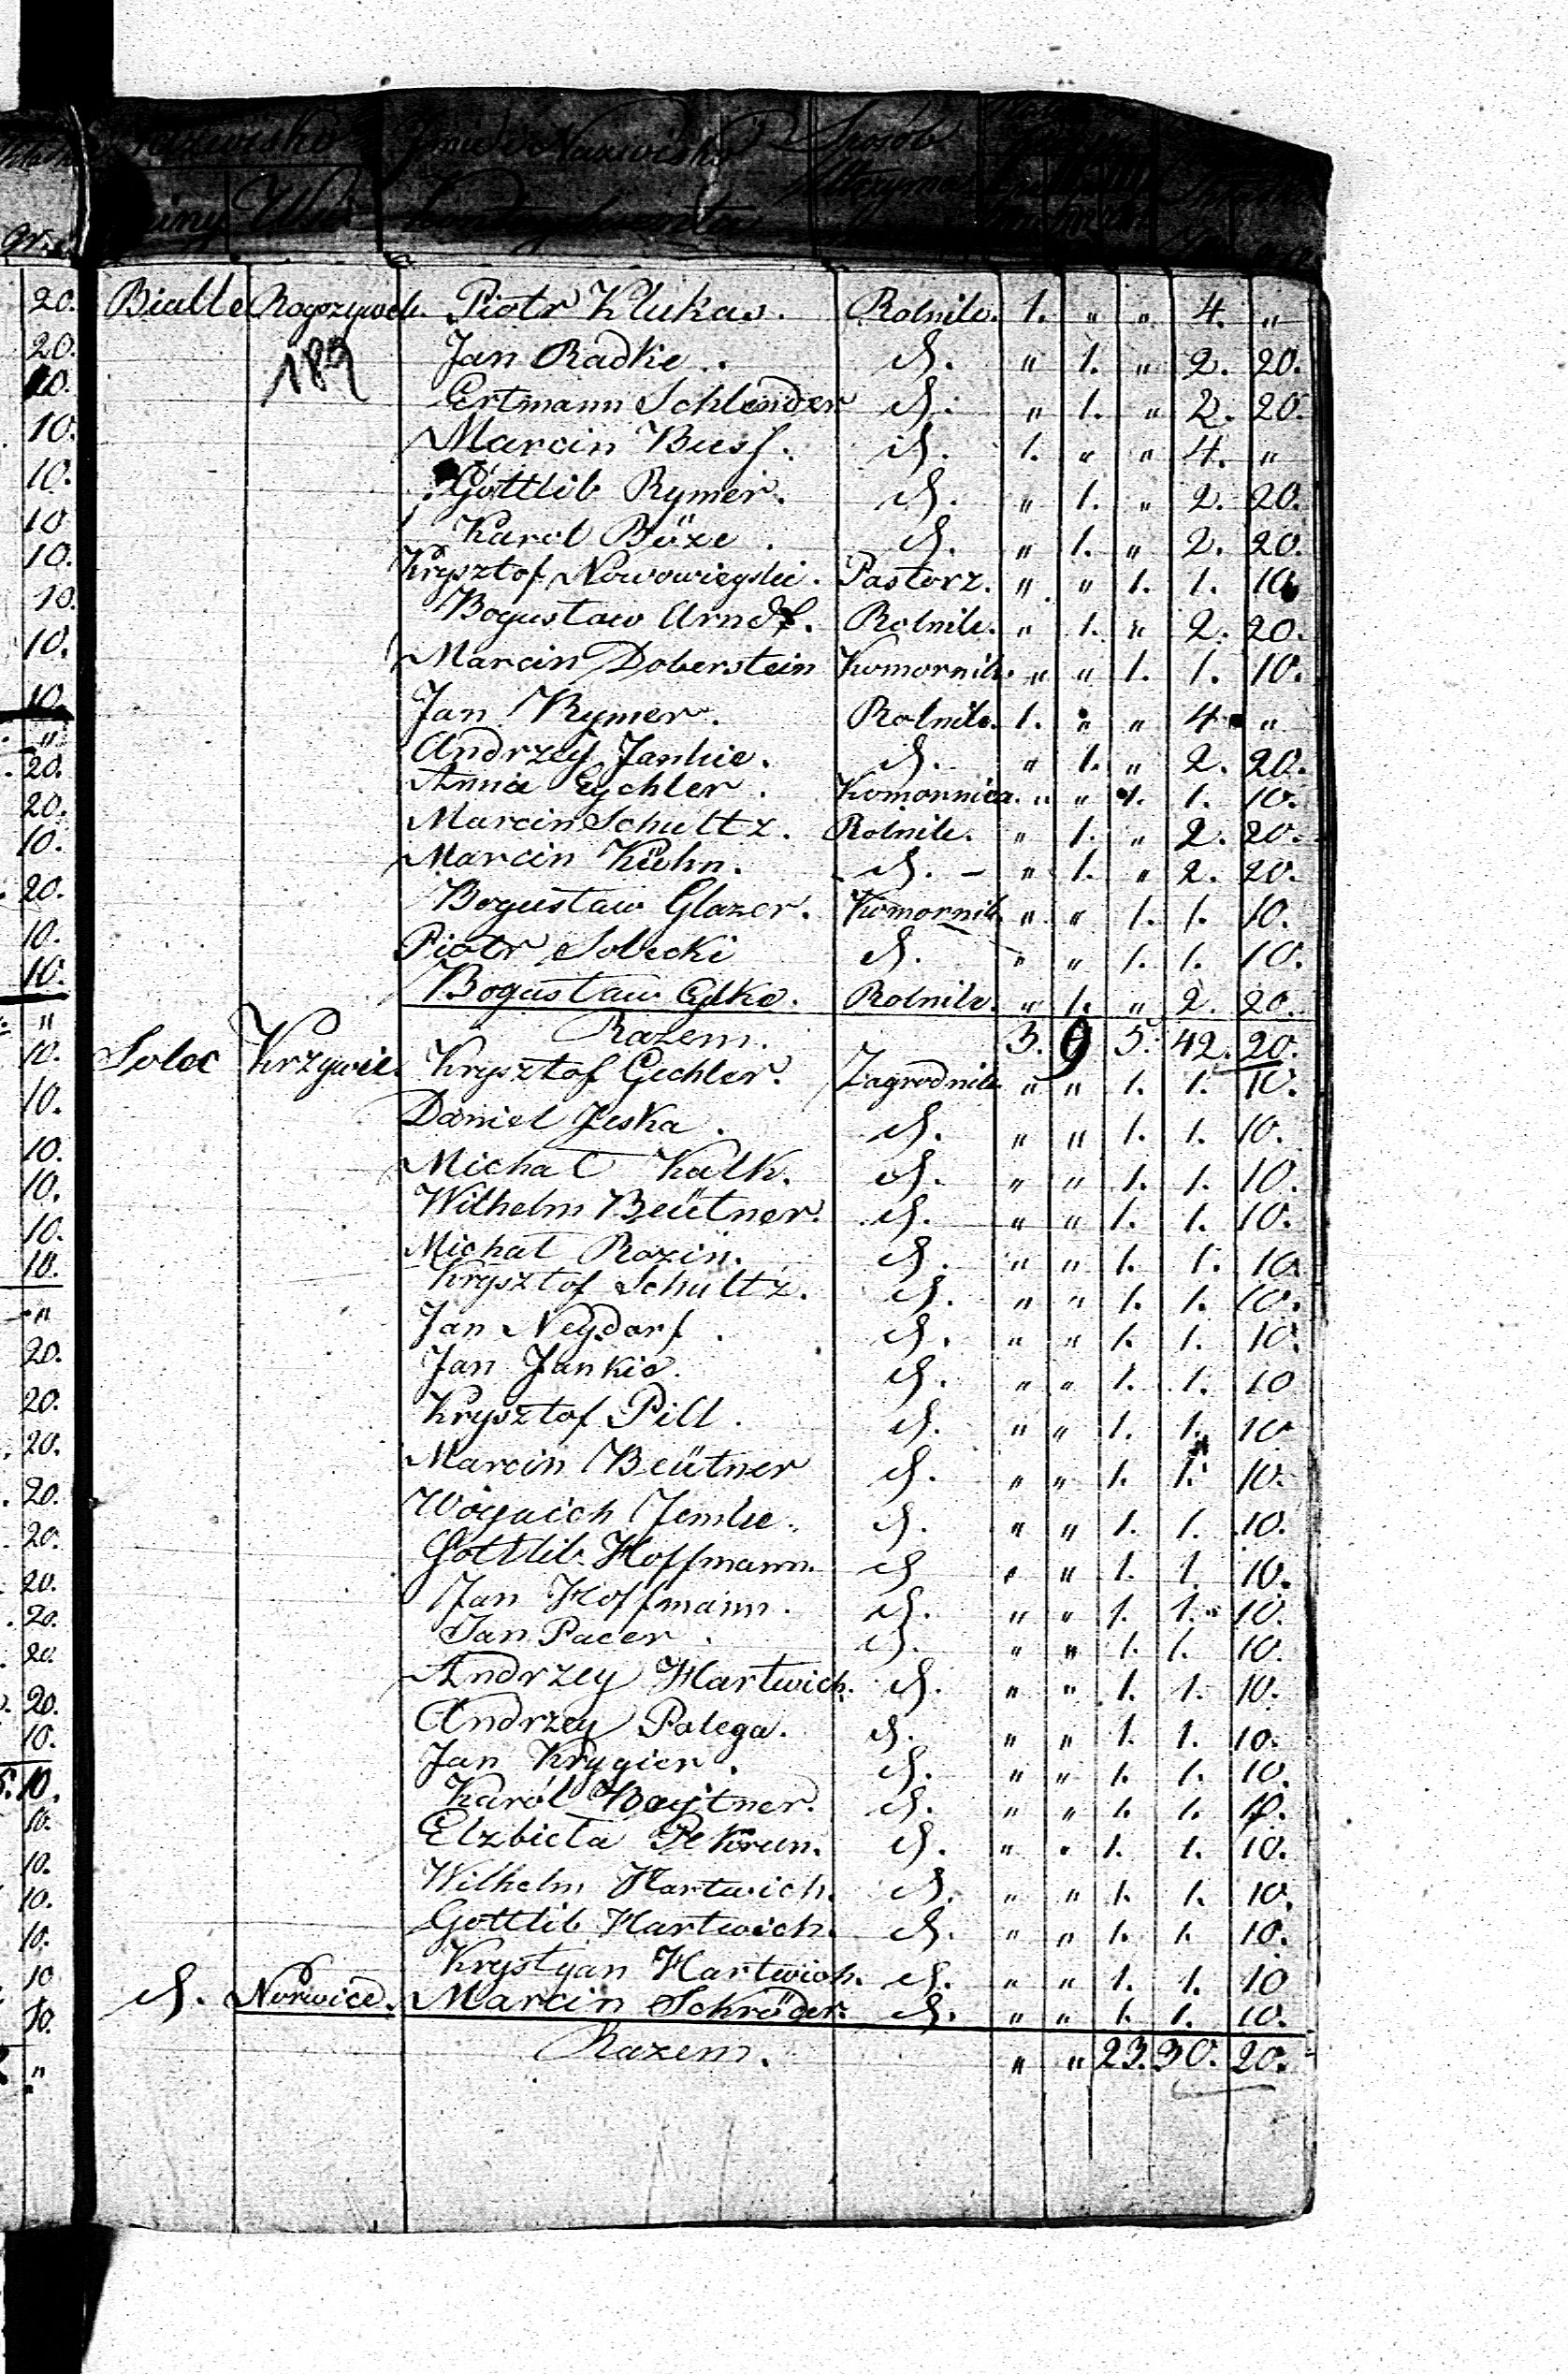 Nazwisko Jmie i Nazwisko Sposób
Gminy Wsi
Bialle Rogozywek. Piotr Klukas. Rolnik. 1. " " 4. "
189 Jan Radke. d. " 1. " 2. 20.
Ertmann Schlender d. " 1. " 2. 20.
Marcin Buss. d. 1. " " 4. "
Gottlib Rymer. d. " 1. " 2. 20.
Karol Böze. d. " 1. " 2. 20.
Krysztof Nowowieyski. Pastorz. " " 1. 1. 10.
Bogustaw Arndt. Rolnik. " 1. " 2. 20.
Marcin Doberstein Komornik. " " 1. 1. 10.
Jan Rymer. Rolnik. 1. " " 4. "
Andrzey Jankie. d. " 1. " 2. 20.
Anna Eychler. Komornica. " " 1. 1. 10.
Marcin Schultz. Rolnik. " 1. " 2. 20.
Marcin Kuhn. d. " 1. " 2. 20.
Bogustaw Glazer. Komornik. " " 1. 1. 10.
Piotr Sobecki d. " " 1. 1. 10.
Bogustaw Rolnik. " 1. " 2. 20.
Razem. 3. 9 5. 42. 20.
Solec Krzywie. Krysztof Eichler. Zagrodnik. " " 1. 1. 10.
Daniel Jeska. d. " " 1. 1. 10.
Michal Kalk. d. " " 1. 1. 10.
Wilhelm Beütner. d. " " 1. 1. 10.
Michal Rozin. d. " " 1. 1. 10.
Krysztof Schultz. d. " " 1. 1. 10.
Jan Neydorf. d. " " 1. 1. 10.
Jan Jankie. d. " " 1. 1. 10
Krysztof Pill. d. " " 1. 1. 10
Marcin Beütner d. " " 1. 1. 10.
Woyciech Jemke. d. " " 1. 1. 10.
Gottlib Hoffmann. d " " 1. 1. 10.
Jan Hoffmann. d. " " 1. 1. 10.
Jan Pacer. d. " " 1. 1. 10.
Andrzey Hartwich. d. " " 1. 1. 10.
Andrzey Polega. d. " " 1. 1. 10.
Jan Krygier. d. " " 1. 1. 10.
Karól Baytner. d. " " 1. 1. 10.
Elzbieta Pekrun. d. " " 1. 1. 10.
Wilhelm Hartwich. d. " " 1. 1. 10.
Gottlib Hartwich. d. " " 1. 1. 10.
Krystyan Hartwich. d. " " 1. 1. 10
d. Norwice. Marcin Schröder. d. " " 1. 1. 10.
Razem. " " 23. 30. 20.